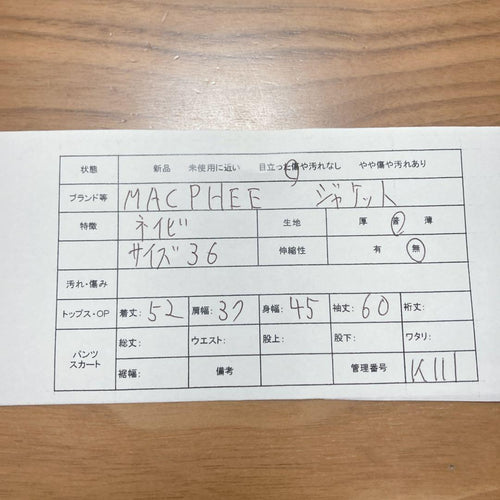 状態 新品 未使用に近い 目立った傷や汚れなし やや傷や汚れあり
ブランド等 MACPHEE ジャケット
特徴 ネイビ 生地 厚 普 薄
サイズ36 伸縮性 有 無
汚れ・傷み
トップス・OP 着丈:52 肩幅:37 身幅:45 袖丈:60 裄丈:
パンツ スカート 総丈: ウエスト: 股上: 股下: ワタリ:
裾幅: 備考 管理番号 K111